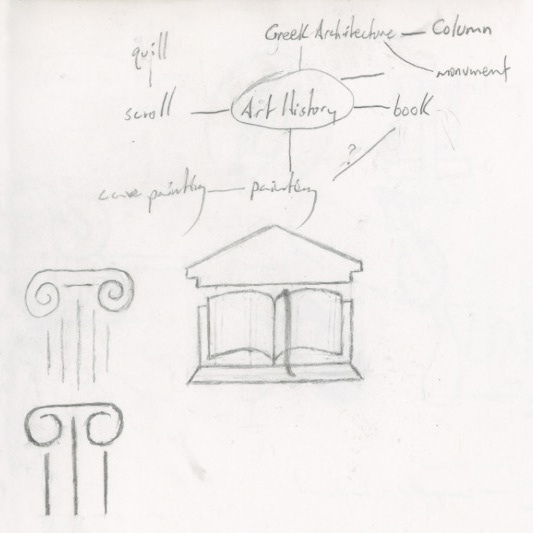 Greek Architecture
Column
quill
monument
scroll
Art History
book
?
cave painting
painting